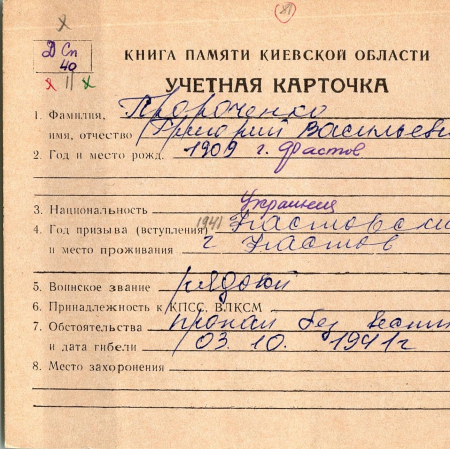 Д Сп
40
КНИГА ПАМЯТИ КИЕВСКОЙ ОБЛАСТИ
УЧЕТНАЯ КАРТОЧКА
1. Фамилия, Пророченко
имя, отчество Григорий Васильеви
2. Год и место рожд. 1909 г. Фастов
3. Национальность Украинец
4. Год призыва (вступления) 1941 Фастовски
и место проживания г. Фастов
5. Воинское звание рядовой
6. Принадлежность к КПСС, ВЛКСМ
7. Обстоятельства пропал без вести
и дата гибели 03. 10. 1941г
8. Место захоронения